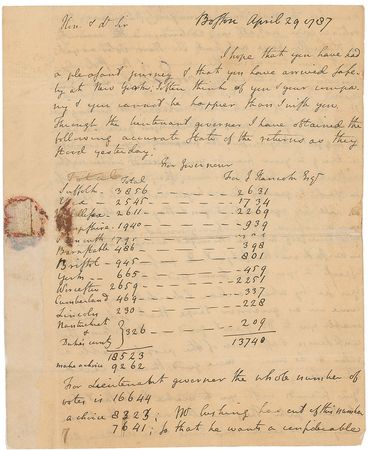 Hon. & dr Sir Boston April 29 1787
I hope that you have had
a pleasant journey & that you have arrived safe-
ly at New York. I often think of you & your compa-
ny & you cannot be happier than I wish you.
Through the lieutenant governer I have obtained the
following accurate State of the returns as they
stood yesterday.
For Governeur
Total For J Hancock Esqr
Suffolk - 3856 2631
Essex - 2545 1734
Middlesex - 2611 2269
Hampshire - 1940 939
Plymouth
Barnstable 486 398
Bristol - 945 801
York - 665 459
Worcester 2659 2251
Cumberland 469 337
Lincoln - 230 228
Nantucket
& 326 209
Dukes county
18523 13740
make a choice 9262
For Lieutenant governer the whole number of
votes is 16644
a choice 8323; Mr Cushing has out of this number
7641; so that he wants a considerable